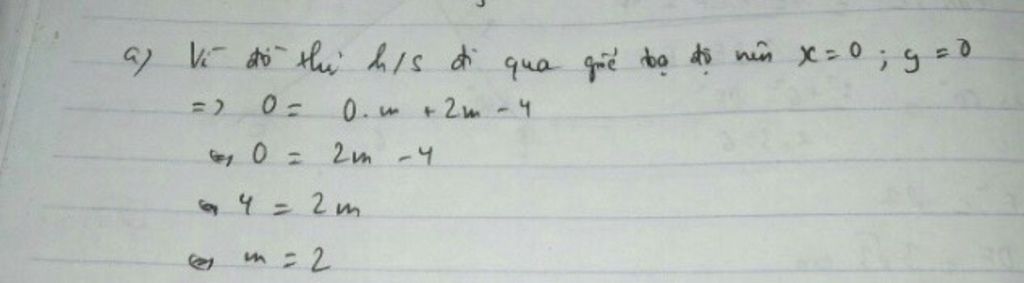 a) Vì đồ thị h/s đi qua gốc tọa độ nên x = 0 ; y = 0
=> 0 = 0. m + 2m - 4
<=> 0 = 2m - 4
<=> 4 = 2m
<=> m = 2